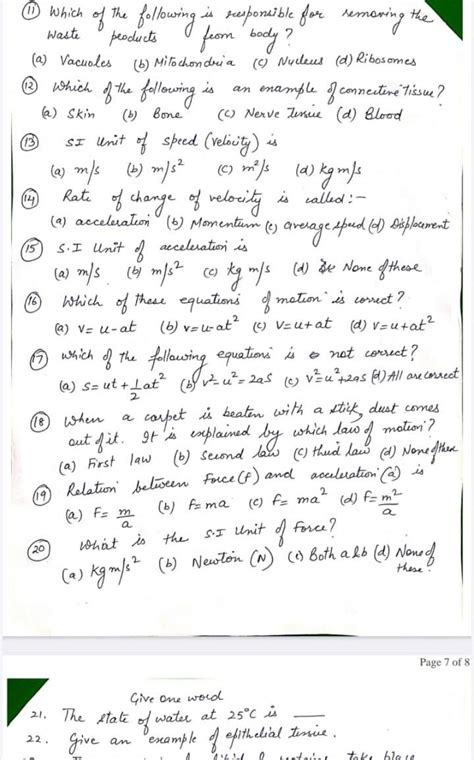 (11) Which of the following is responsible for removing the
waste products from body?
(a) Vacuoles (b) Mitochondria (c) Nucleus (d) Ribosomes
(12) Which of the following is an example of connective Tissue?
(a) Skin (b) Bone (c) Nerve Tissue (d) Blood
(13) SI Unit of speed (velocity) is
(a) m/s (b) m/s² (c) m²/s (d) kg m/s
(14) Rate of change of velocity is called:-
(a) acceleration (b) Momentum (c) average speed (d) Displacement
(15) S.I Unit of acceleration is
(a) m/s (b) m/s² (c) kg m/s (d) None of these
(16) Which of these equations of motion is correct?
(a) v= u-at (b) v=u-at² (c) v=u+at (d) v=u+at²
(17) which of the following equations is not correct?
(a) s=ut+1/2at² (b) v²-u²=2as (c) v²=u²+2as (d) All are correct
(18) When a carpet is beaten with a stick, dust comes
out of it. It is explained by which law of motion?
(a) First law (b) Second law (c) third law (d) None of these
(19) Relation between Force(f) and acceleration(a) is
(a) F= m/a (b) f=ma (c) f= ma² (d) f=m²/a
(20) What is the S.I Unit of Force?
(a) kg m/s² (b) Newton (N) (c) Both a & b (d) None of
these?
Page 7 of 8
Give one word
21. The state of water at 25°C is ___
22. Give an example of epithelial tissue.